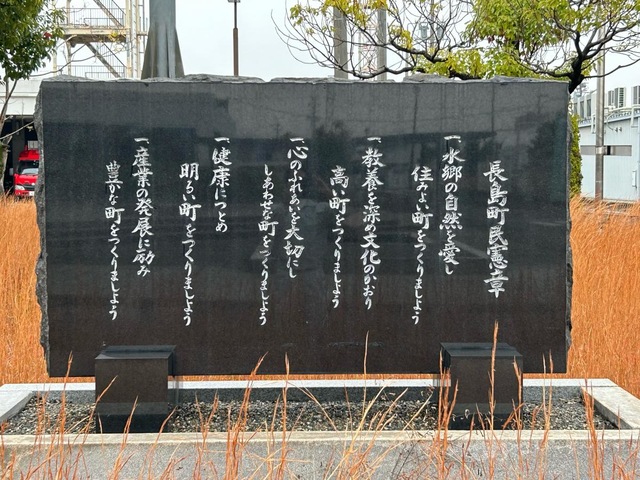 長島町民憲章
一水郷の自然を愛し
住みよい町をつくりましよう
一教養を深め文化のかおり
高い町をつくりましよう
一心のふれあいを大切にし
しあわせな町をつくりましよう
一健康につとめ
明るい町をつくりましよう
一産業の発展に励み
豊な町をつくりましよう